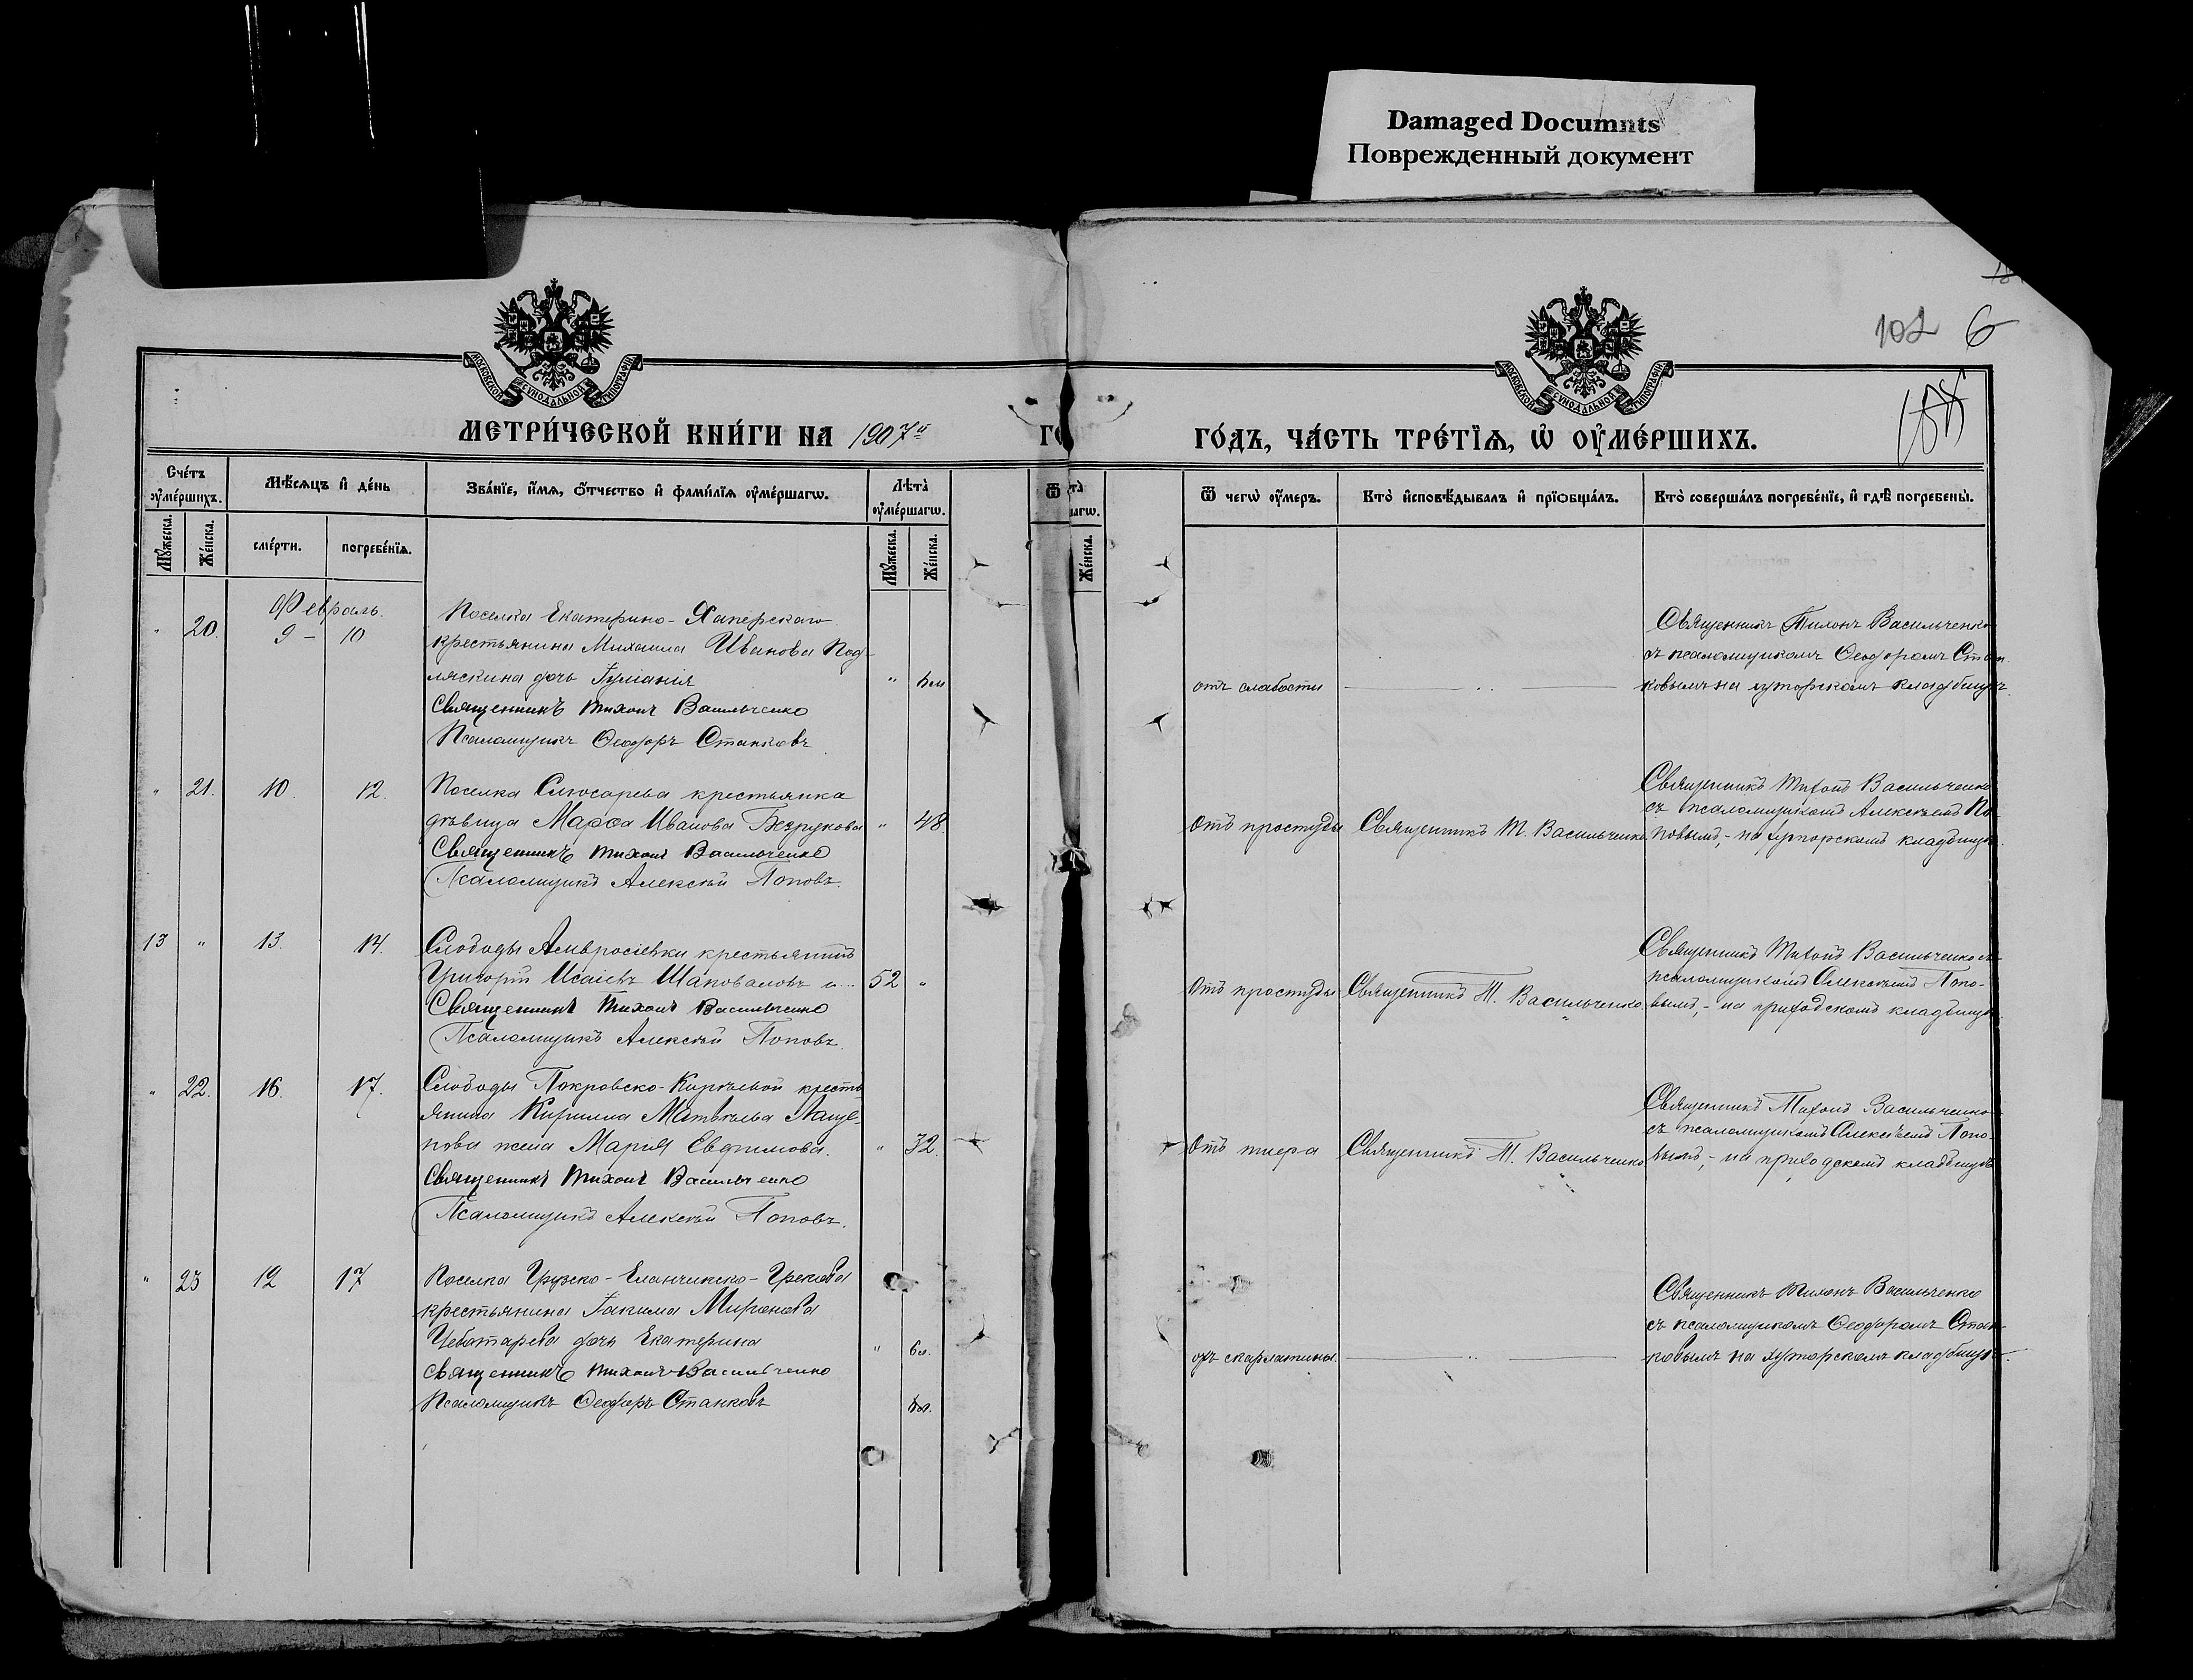 Damaged Documnts
Поврежденный документ
102 6
МОСКОВСКОЙ СѴНОДАЛЬНОЙ ТИПОГРАФІИ
МОСКОВСКОЙ СѴНОДАЛЬНОЙ ТИПОГРАФІИ
МЕТРИ́ЧЕСКОЙ КНИ́ГИ НА 1907й
ГО́ДЪ, ЧА́СТЬ ТРЕ́ТІѦ, Ѡ҆ ОУ҆МЕ́РШИХЪ.
Сче́тъ оу҆ме́ршихъ.
Мѣ́сѧцъ и҆ де́нь
Зва́нїе, и҆́мѧ, ѻ҆́тчество и҆ фами́лїѧ оу҆ме́ршагѡ.
Лѣта̀ оу҆ме́ршагѡ.
Ѿ чегѡ̀ оу҆́меръ.
Кто̀ и҆сповѣ́дывалъ и҆ прїѡбща́лъ.
Кто̀ соверша́лъ погребе́нїе, и҆ гдѣ̀ погребены̀.
Мꙋ́жеска.
Же́нска.
сме́рти.
погребе́нїѧ.
Мꙋ́жеска.
Же́нска.
Же́нска.
Февраль.
" 20. 9 – 10
Поселка Екатерино-Хаперскаго
крестьянина Михаила Иванова Под-
ляскина дочь Іуліанія "
отъ слабости
Священникъ Тихонъ Васильченко
Псаломщикъ Ѳеодоръ Станковъ
Священникъ Тихонъ Васильченко
съ псаломщикомъ Ѳеодоромъ Стан-
ковымъ на хуторскомъ кладбищѣ.
" 21. 10. 12.
Поселка Слюсарева крестьянка
дѣвица Марѳа Иванова Безрукова " 48
Священникъ Тихонъ Васильченко
Псаломщикъ Алексѣй Поповъ.
Отъ простуды
Священникъ Т. Васильченко
Священникъ Тихонъ Васильченко
съ псаломщикомъ Алексѣемъ По-
повымъ, - на хуторскомъ кладбищѣ.
13 " 13. 14.
Слободы Амвросіевки крестьянинъ
Григорій Исаіевъ Шаповаловъ 52 "
Священникъ Тихонъ Васильченко
Псаломщикъ Алексѣй Поповъ.
Отъ простуды
Священникъ Т. Васильченко.
Священникъ Тихонъ Васильченко съ
псаломщикомъ Алексѣемъ Попо-
вымъ, - на приходскомъ кладбищѣ
" 22. 16. 17.
Слободы Покровско-Кирѣевой кресть-
янина Кирилла Матвѣева Лаще-
нова жена Марія Евфимова. " 32.
Священникъ Тихонъ Васильченко
Псаломщикъ Алексѣй Поповъ.
Отъ тифа
Священникъ Т. Васильченко
Священникъ Тихонъ Васильченко
съ псаломщикомъ Алексѣемъ Попо-
вымъ, - на приходскомъ кладбищѣ
" 23 12 17
Поселка Грузско-Еланчинско-Грекова
крестьянина Іакима Миронова
Чеботарева дочь Екатерина " 6л.
Священникъ Тихонъ Васильченко
Псаломщикъ Ѳеодоръ Станковъ
отъ скарлатины.
Священникъ Тихонъ Васильченко
съ псаломщикомъ Ѳеодоромъ Стан-
ковымъ на хуторскомъ кладбищѣ.